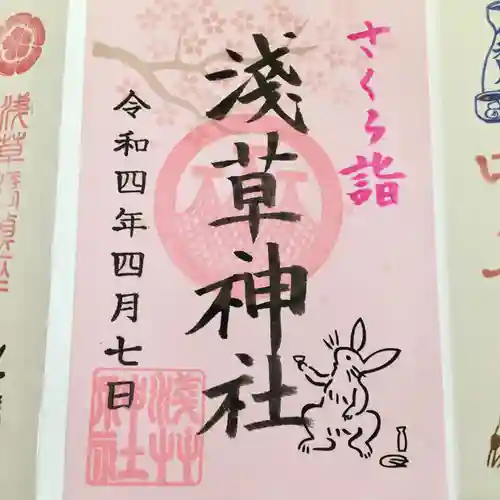 さくら詣
淺草神社
令和四年四月七日
淺草神社